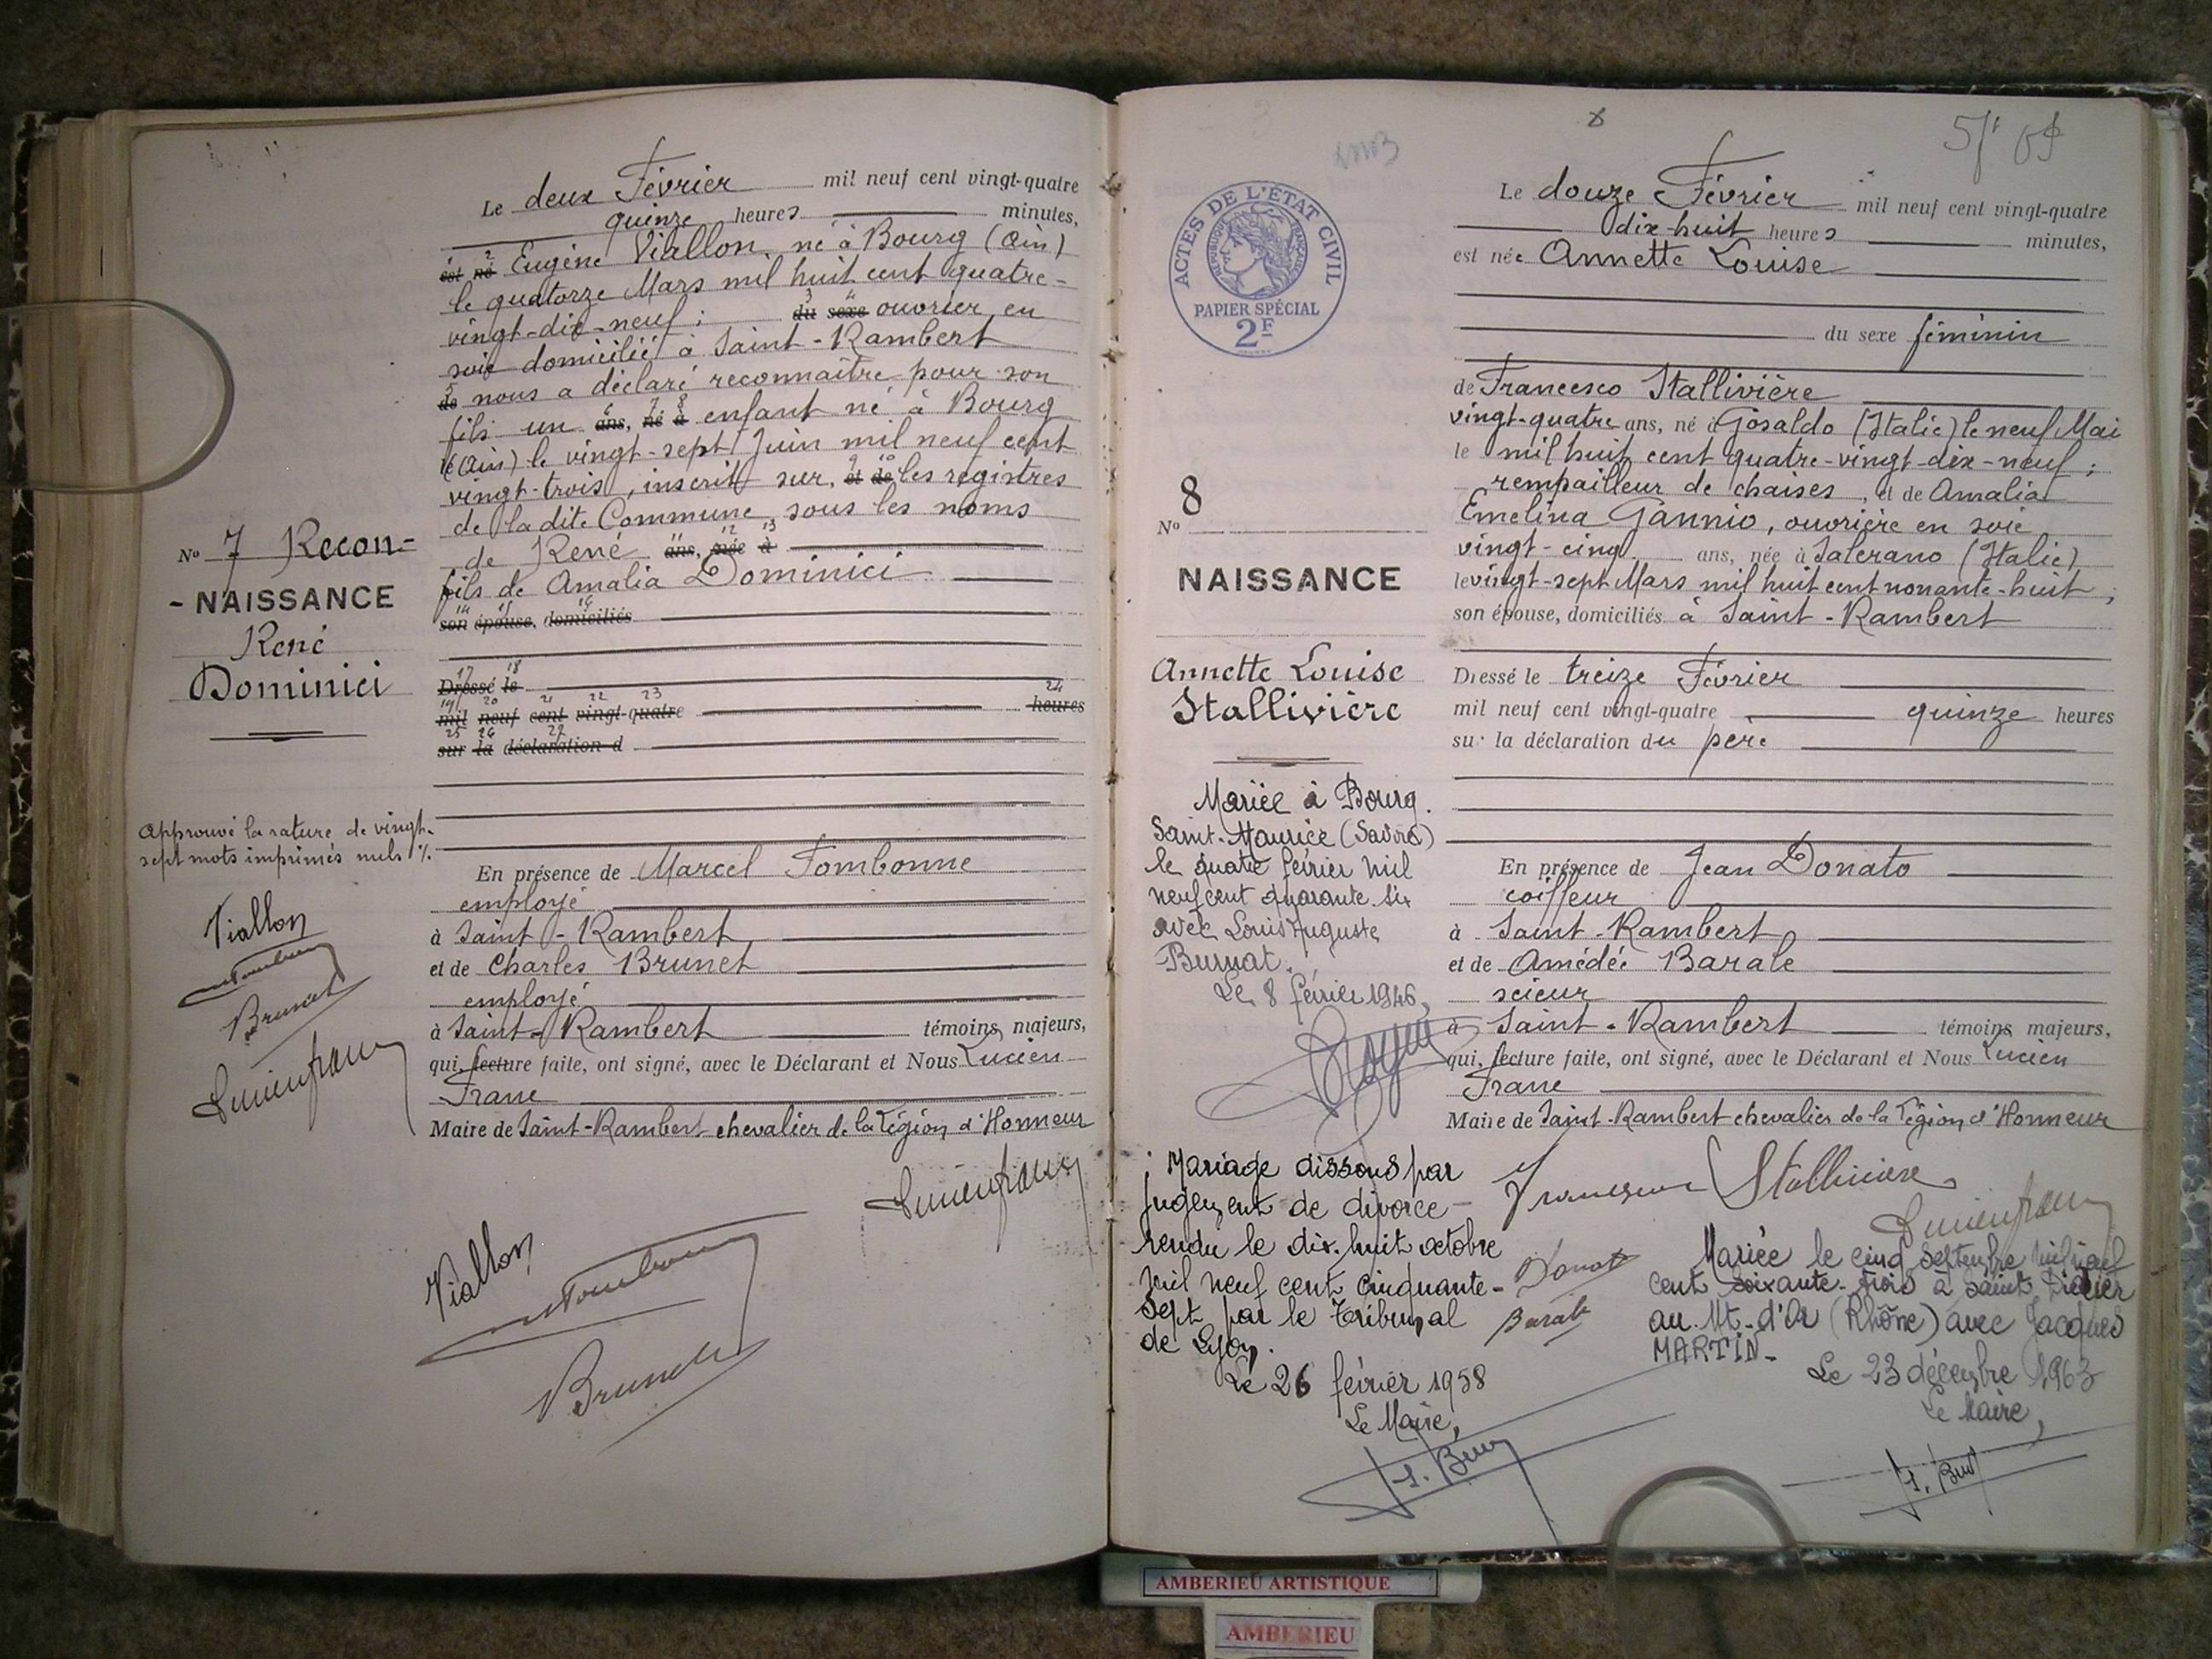 Le deux Février mil neuf cent vingt-quatre
quinze heures minutes,
est né Eugène Viallon né à Bourg (Ain)
le quatorze Mars mil huit cent quatre-
vingt-dix-neuf ; du sexe ouvrier en
soie domicilié à Saint-Rambert
de nous a déclaré reconnaître pour son
fils un ans, né à enfant né à Bourg
(Ain) le vingt-sept Juin mil neuf cent
vingt-trois, inscrit sur, et de les registres
de la dite Commune sous les noms
de René ans, née à
fils de Amalia Dominici
son épouse, domiciliés
Dressé le
mil neuf cent vingt-quatre heures
sur la déclaration d
En présence de Marcel Fombonne
employé
à Saint-Rambert
et de Charles Brunet
employé
à Saint-Rambert témoins majeurs,
qui, lecture faite, ont signé, avec le Déclarant et Nous Lucien
Franc
Maire de Saint-Rambert chevalier de la Légion d'Honneur
Viallon
Brunet
No 7 Recon-
- NAISSANCE
René
Dominici
Approuvé la rature de vingt-
sept mots imprimés nuls
Viallon
Brunet
ACTES DE L'ÉTAT CIVIL
RÉPUBLIQUE FRANÇAISE
PAPIER SPÉCIAL
2F
8
No
NAISSANCE
Annette Louise
Stallivière
Mariée à Bourg
Saint-Maurice (Savoie)
le quatre février mil
neuf cent quarante-six
avec Louis Auguste
Burnat.
Le 8 février 1946
Mariage dissous par
jugement de divorce
rendu le dix-huit octobre
mil neuf cent cinquante-
sept par le Tribunal
de Lyon.
Le 26 février 1958
Le Maire,
Le douze Février mil neuf cent vingt-quatre
dix-huit heures minutes,
est née Annette Louise
du sexe féminin
de Francesco Stallivière
vingt-quatre ans, né à Gosaldo (Italie) le neuf Mai
le mil huit cent quatre-vingt-dix-neuf ;
rempailleur de chaises, et de Amalia
Emelina Gannio, ouvrière en soie
vingt-cinq ans, née à Salerano (Italie)
le vingt-sept Mars mil huit cent nonante-huit ;
son épouse, domiciliés à Saint-Rambert
Dressé le treize Février
mil neuf cent vingt-quatre quinze heures
sur la déclaration du père
En présence de Jean Donato
coiffeur
à Saint-Rambert
et de Amédée Barale
scieur
à Saint-Rambert témoins majeurs,
qui, lecture faite, ont signé, avec le Déclarant et Nous Lucien
Franc
Maire de Saint-Rambert chevalier de la Légion d'Honneur
Stalliviere
Donato
Barale
Mariée le cinq septembre mil neuf
cent soixante-trois à Saint Didier
au Mt-d'Or (Rhône) avec Jacques
MARTIN-
Le 23 décembre 1963
Le Maire,
AMBERIEU ARTISTIQUE
AMBERIEU